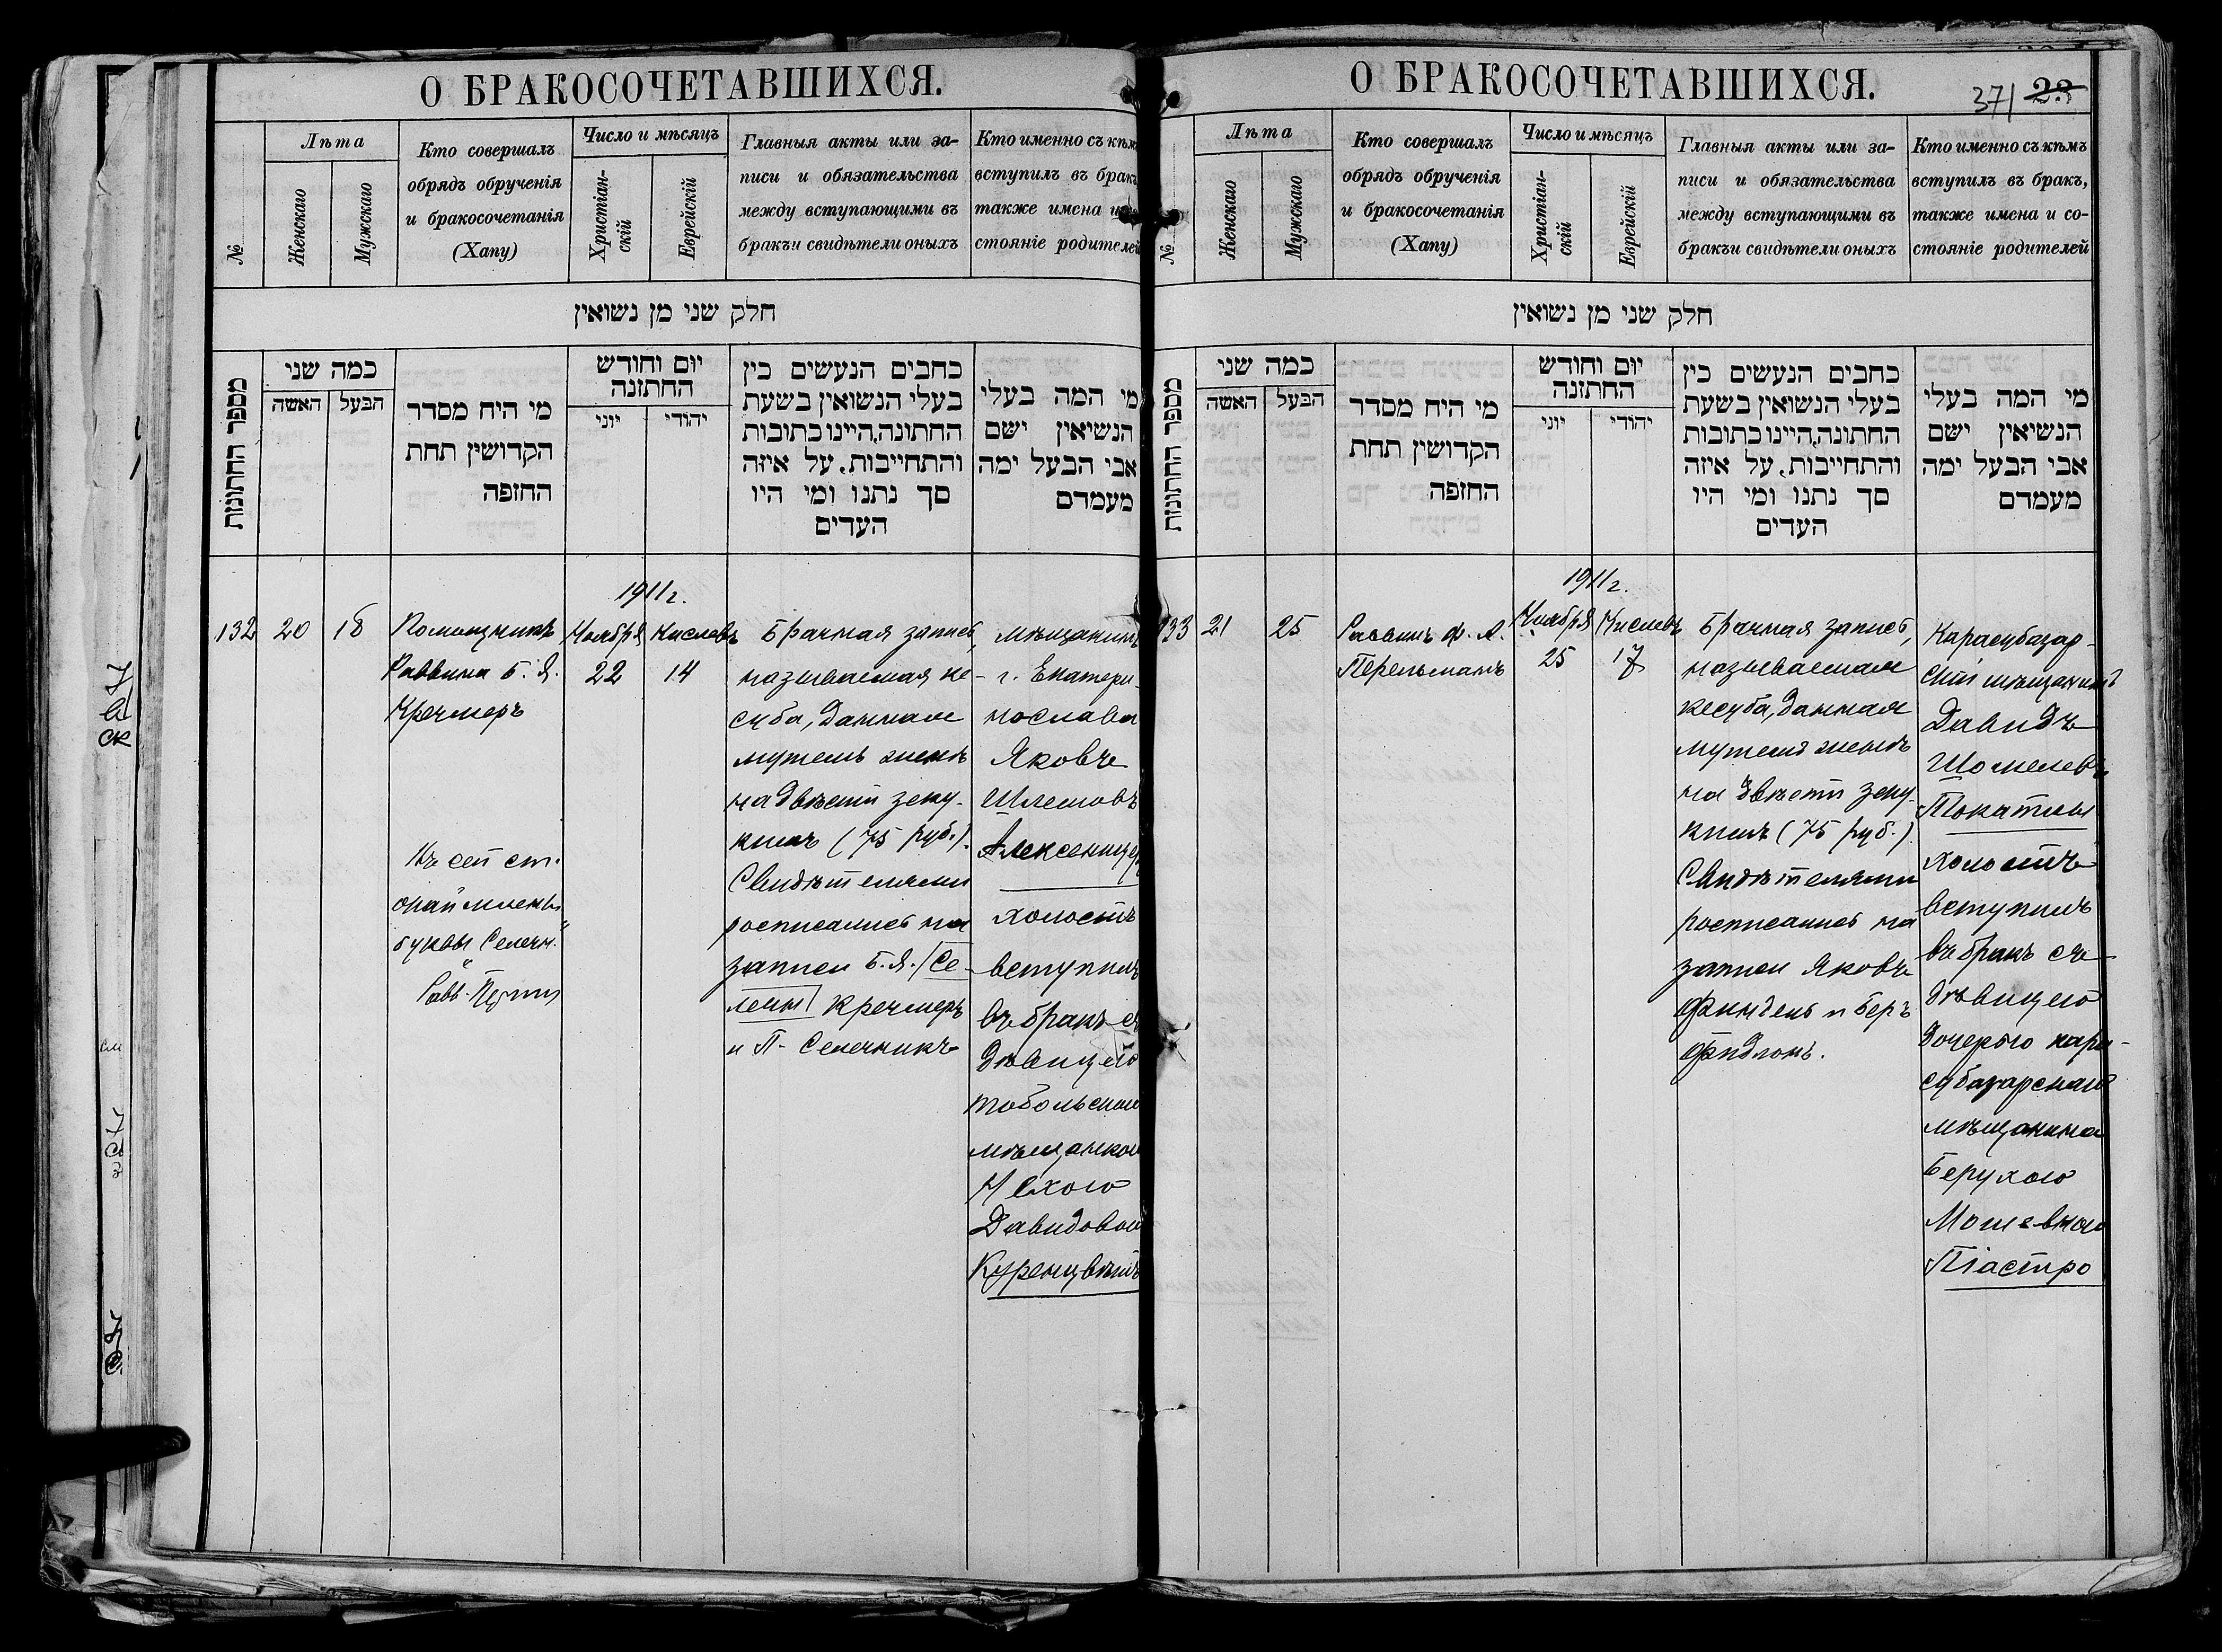 О БРАКОСОЧЕТАВШИХСЯ.
№
Лѣта
Женскаго
Мужскаго
Кто совершалъ
обрядъ обрученія
и бракосочетанія
(Хапу)
Число и мѣсяцъ
Христіан-
скій
Еврейскій
Главныя акты или за-
писи и обязательства
между вступающими въ
бракъи свидѣтели оныхъ
Кто именно съ кѣм
вступилъ въ бракъ
также имена и
стояніе родителей
חלק שני מן נשואין
מספר החתונות
כמה שני
האשה
הבעל
מי היח מסדר
הקדושין תחת
החופה
יום וחודש
החתונה
יוני
יהודי
כחבים הנעשים כין
בעלי הנשואין בשעת
החתונה,היינו כתובות
והתחייבות. על איזה
סך נתנו ומי היו
העדים
מי המה בעלי
הנשיאין ישם
אבי הבעל ימה
מעמדם
132
20
18
Помощникъ
Раввина Б. Я.
Кречмеръ
Къ сей ст.
Равв.
1911 г.
Ноября
22
Кислевъ
14
Брачная запись,
называемая ке-
суба, данная
мужемъ женѣ
на двѣсти зеку-
кимъ (75 руб.).
Свидѣтелями
росписались на
записи Б. Я. /Се-
лечн/ Кречмеръ
и П. Селечникъ
мѣщанинъ
г. Екатери-
нослава
Яковъ
Шлемовъ
Алексеницер
холостъ
вступилъ
въ бракъ съ
дѣвицею
тобольскою
мѣщанкою
Нехою
Давидовою
Куренцвѣтъ
О БРАКОСОЧЕТАВШИХСЯ.
37/ 23
№
Лѣта
Женскаго
Мужскаго
Кто совершалъ
обрядъ обрученія
и бракосочетанія
(Хапу)
Число и мѣсяцъ
Христіан-
скій
Еврейскій
Главныя акты или за-
писи и обязательства
между вступающими въ
бракъи свидѣтели оныхъ
Кто именно съ кѣмъ
вступилъ въ бракъ,
также имена и со-
стояніе родителей
חלק שני מן נשואין
מספר החתונות
כמה שני
האשה
הבעל
מי היח מסדר
הקדושין תחת
החופה
יום וחודש
החתונה
יוני
יהודי
כחבים הנעשים כין
בעלי הנשואין בשעת
החתונה,היינו כתובות
והתחייבות. על איזה
סך נתנו ומי היו
העדים
מי המה בעלי
הנשיאין ישם
אבי הבעל ימה
מעמדם
133
21
25
Раввинъ Ф. А.
Перельманъ
1911 г.
Ноября
25
Кислевъ
17
Брачная запись,
называемая
кесуба, данная
мужемъ женѣ
на двѣсти зеку-
кимъ (75 руб.)
Свидѣтелями
росписались на
записи Яковъ
Фингель и Беръ
Фидлонъ.
Карасубазар-
скій мѣщанинъ
Давидъ
Шомелевъ
Токатлы
холостъ
вступилъ
въ бракъ съ
дѣвицею
дочерью кара-
субазарскаго
мѣщанина
Берухою
Мошевною
Піастро